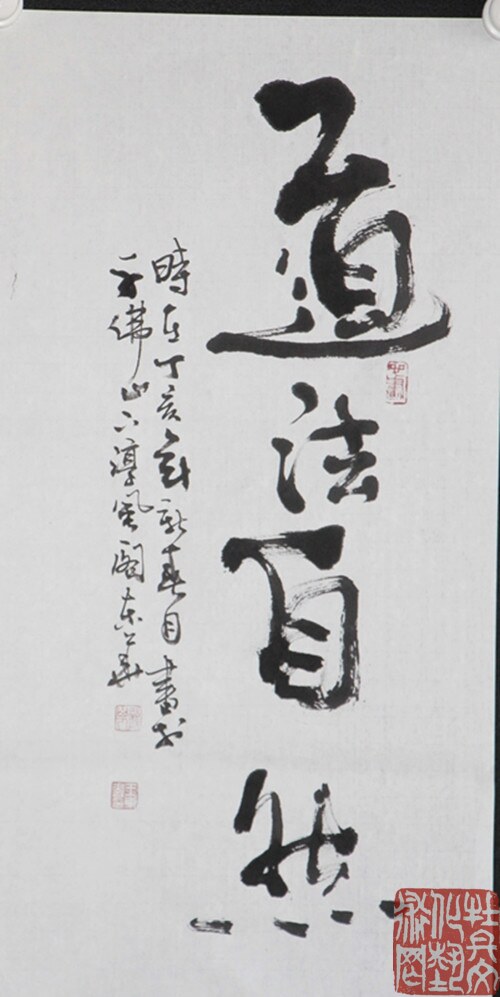 道法自然
時在丁亥年新春月書於
千佛山下淳風閣東華